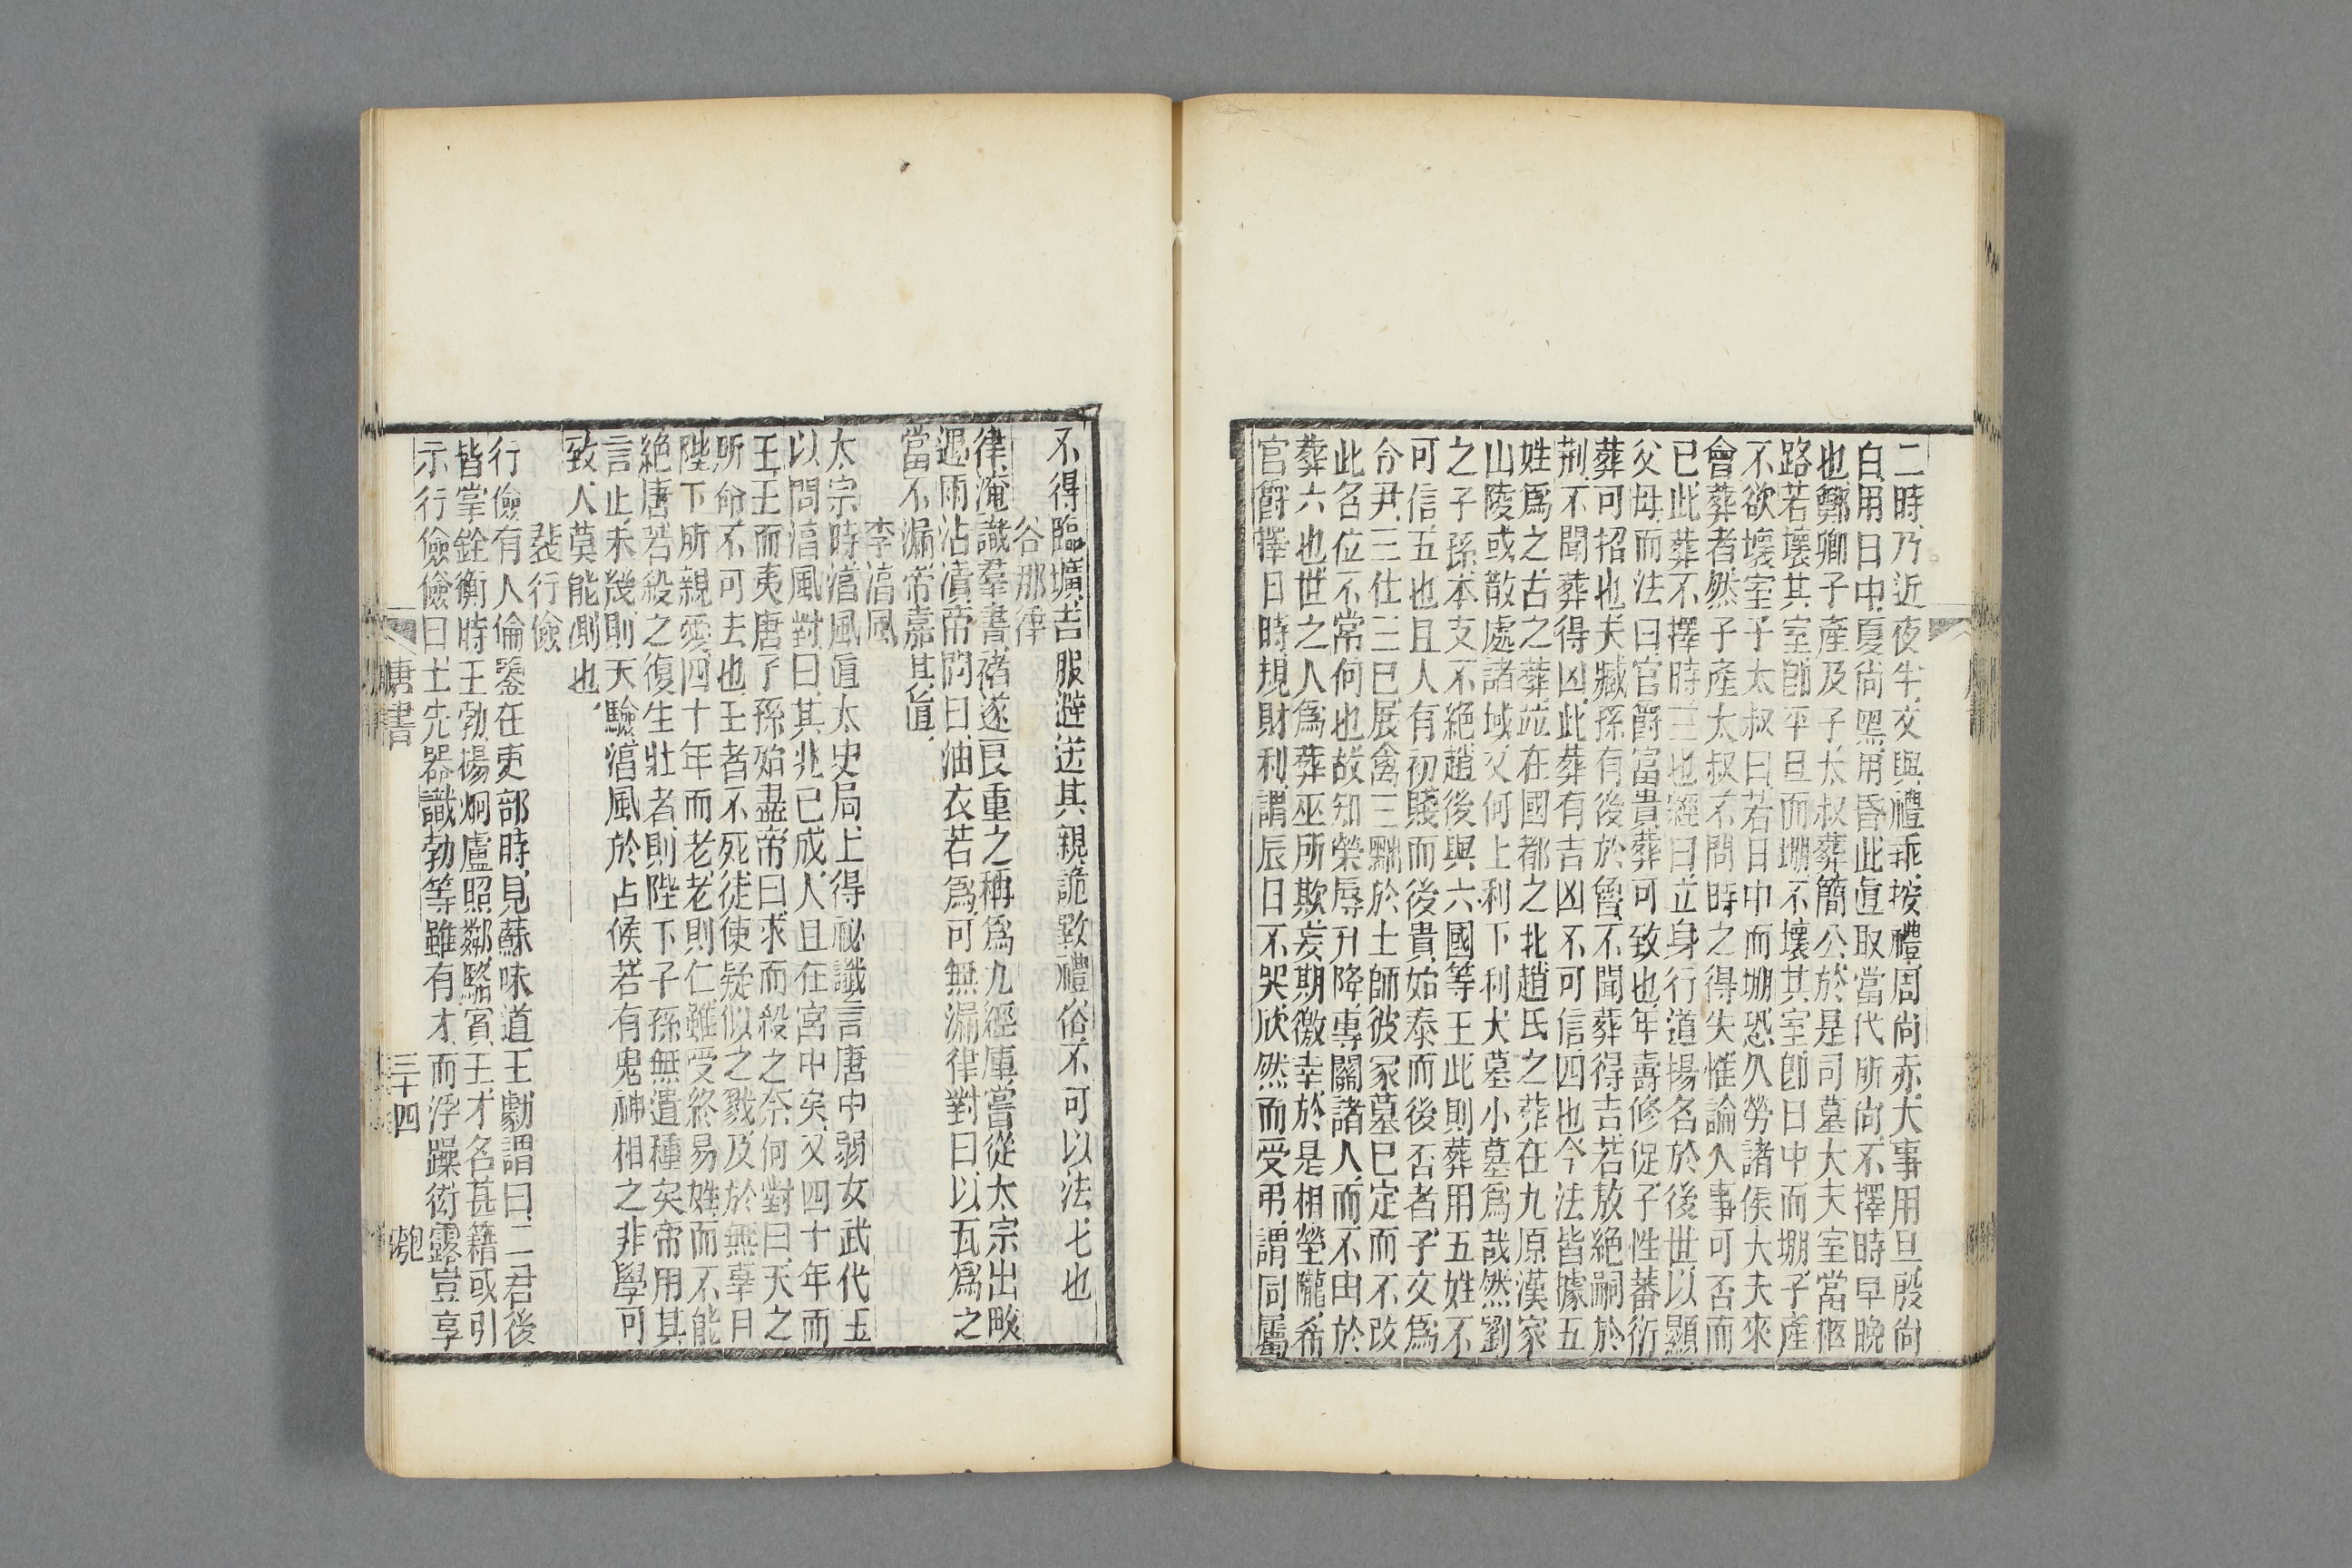 二時乃近夜半文與禮乖按禮周尚赤大事用旦殷尚
白用日中夏尚黑用昏此直取當代所尚不擇時早晚
也鄭卿子產及子太叔葬簡公於是司墓大夫室當柩
路若壞其室卽平旦而堋不壞其室卽日中而堋子產
不欲壞室子太叔曰若日中而堋恐久勞諸侯大夫來
會葬者然子產太叔不問時之得失惟論人事可否而
已此葬不擇時三也經曰立身行道揚名於後世以顯
父母而法曰官爵富貴葬可致也年壽修促子性蕃衍
葬可招也夫臧孫有後於魯不聞葬得吉若敖絕嗣於
荆不聞葬得凶此葬有吉凶不可信四也今法皆據五
姓爲之古之葬竝在國都之北趙氏之葬在九原漢家
山陵或散處諸域又何上利下利大墓小墓爲哉然劉
之子孫本支不絕趙後與六國等王此則葬用五姓不
可信五也且人有初賤而後貴始泰而後否者子文爲
令尹三仕三已展禽三黜於士師彼冢墓已定而不改
此名位不常何也故知榮辱升降事關諸人而不由於
葬六也世之人爲葬巫所欺妄期徼幸於是相塋隴希
官爵擇日時規財利謂辰日不哭欣然而受弔謂同屬
不得臨壙吉服避送其親詭斁禮俗不可以法七也
谷那律
律淹識羣書褚遂良重之稱爲九經庫嘗從太宗出畋
遇雨沾漬帝問曰油衣若爲可無漏律對曰以瓦爲之
當不漏帝嘉其直
李淳風
太宗時淳風直太史局上得祕讖言唐中弱女武代王
以問淳風對曰其兆已成人且在宮中矣又四十年而
王王而夷唐子孫殆盡帝曰求而殺之奈何對曰天之
所命不可去也王者不死徒使疑似之戮及於無辜且
陛下所親愛四十年而老老則仁雖受終易姓而不能
絕唐若殺之復生壯者則陛下子孫無遺種矣帝用其
言止未幾則天驗淳風於占候若有鬼神相之非學可
致人莫能測也
裴行儉
行儉有人倫鑒在吏部時見蘇味道王勮謂曰二君後
皆掌銓衡時王勃揚炯盧照鄰駱賓王才名甚籍或引
示行儉儉曰士先器識勃等雖有才而浮躁衒露豈享
唐書
三十四